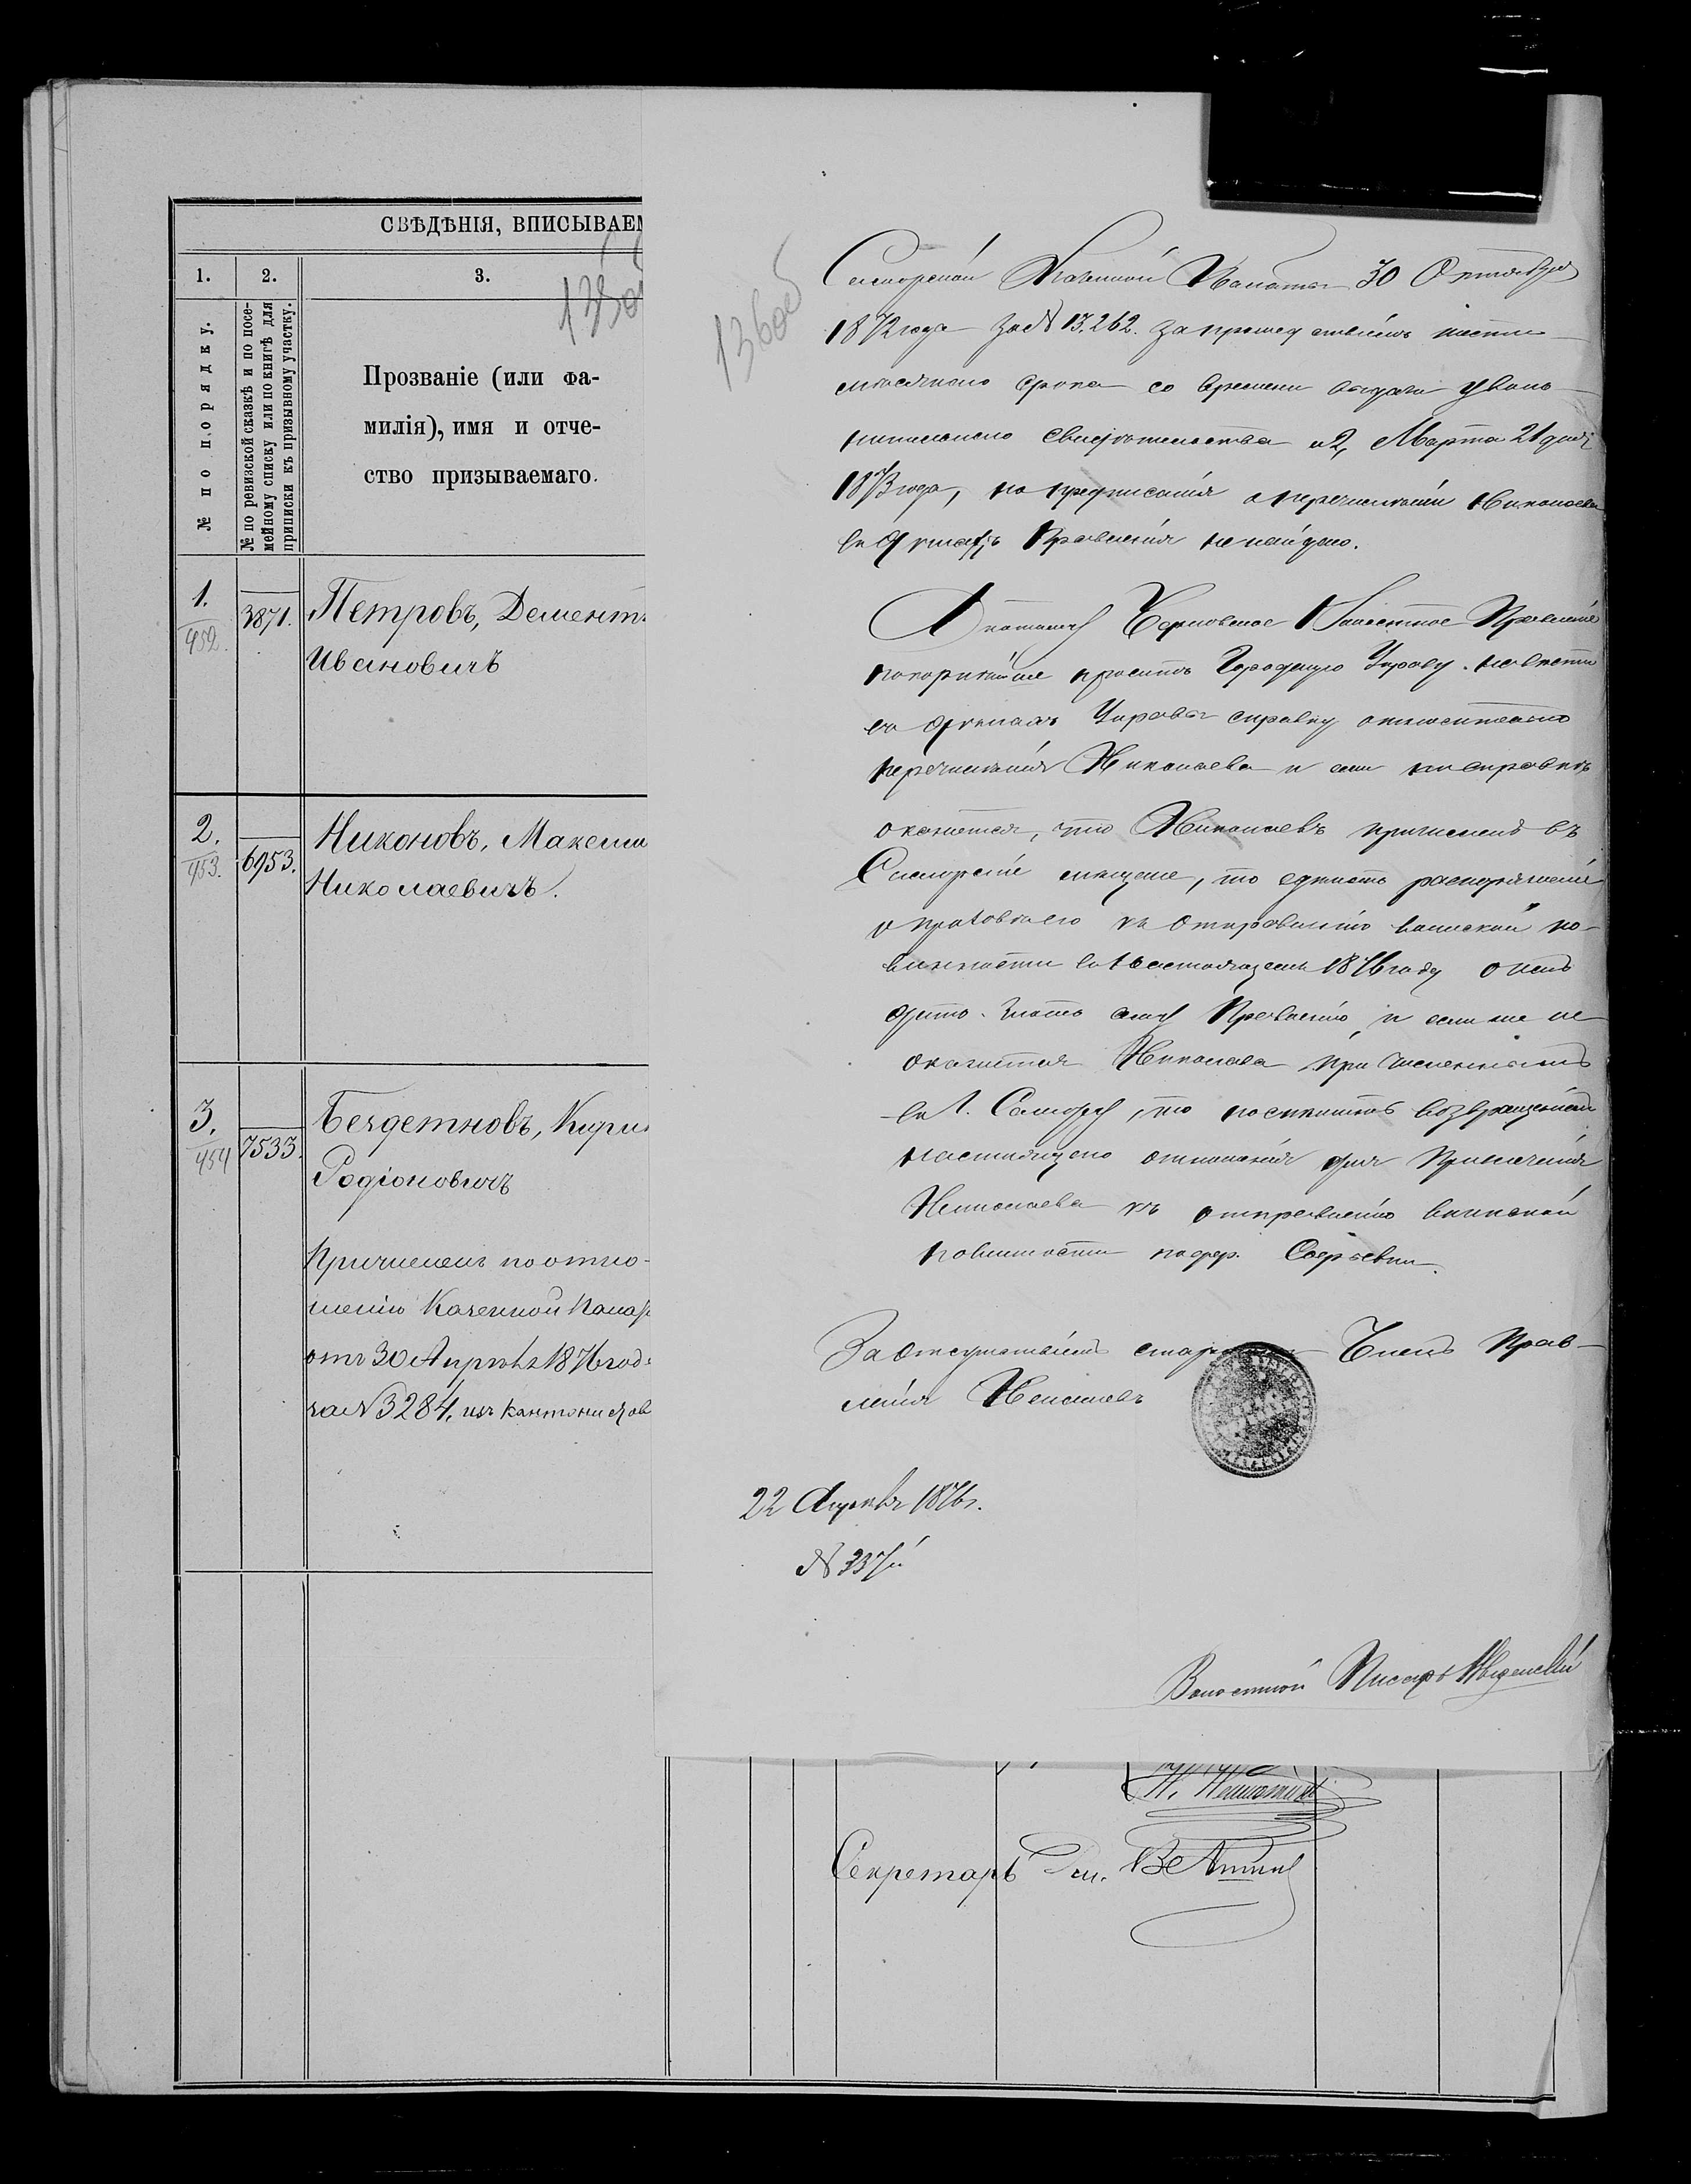 СВѢДѢНІЯ, ВПИСЫВАЕМ
1. 2. 3.
№ по порядку.
№ по ревизской сказкѣ и по посе-
мейному списку или по книгѣ для
приписки къ призывному участку.
Прозваніе (или фа-
милія), имя и отче-
ство призываемаго.
135об
1.
452.
3871.
Петровъ, Демент
Ивановичъ
2.
453.
6953.
Никоновъ, Макси
Николаевичъ.
3.
454
7533.
Бездетновъ, Кири
Родіоновичъ
Причисленъ по отно-
шенію Казенной Пала
отъ 30 Апрѣля 1876 год
за № 3284, изъ кантонистов
136об
Самарской Казенной Палаты 30 Октября
1872 года за № 13.262. за прошедствіемъ шести
мѣсячного срока со времени выдачи уволь
нительного свидѣтельства и 2, Марта 21 дня
1873 года, но предписанія о перечисленіи Николаева
въ дѣлахъ Правленія не найдено.
А потому Черновское Волостное Правленіе
покорнѣйше проситъ Городскую Управу навести
въ дѣлахъ Управы справку относительно
перечисленія Николаева и если по справкѣ
окажется, что Николаевъ причисленъ въ
Самарскіе мѣщане, то сдѣлать распоряженіе
о къ отправленію воинской по-
винности въ настоящемъ 1876 году о чемъ
дать знать сему Правленію, и если же не
окажется Николаева при численнымъ
въ г. Самару, то возвращеніемъ
настоящаго отношенія для Привлеченія
Николаева къ отправленію воинской
повинности по дер.
За отсутствіемъ старшины Членъ Прав-
ленія
22 Апрѣля 1876 г.
№ 337й
Волостной Писарь
Секретарь